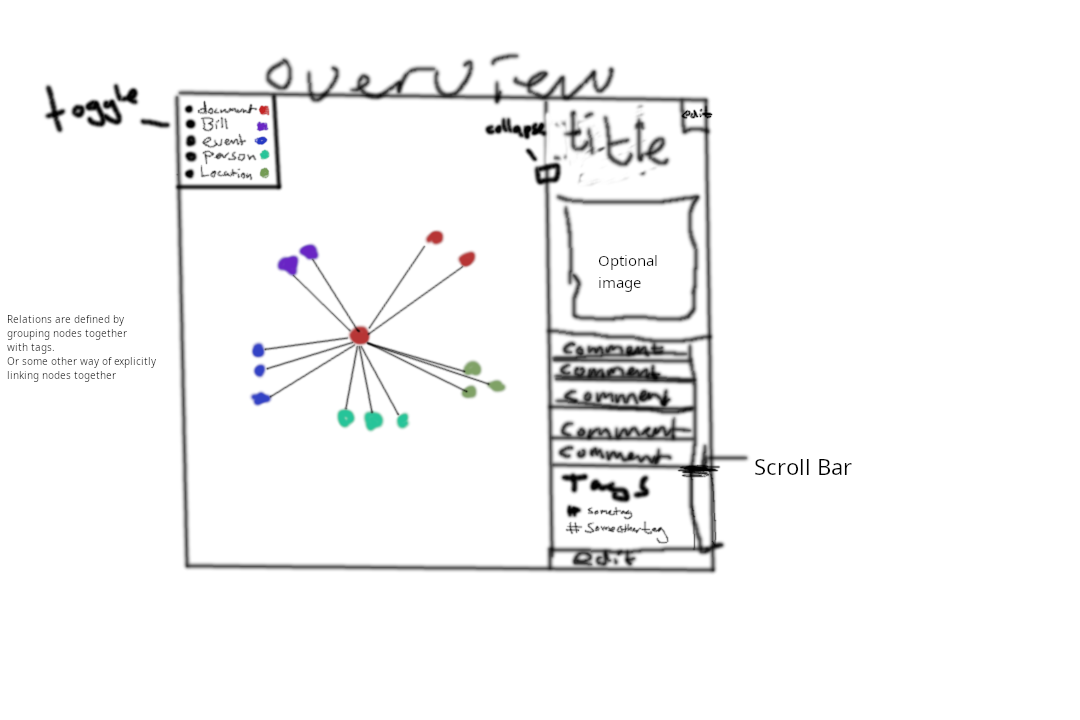 overview
toggle
document
Bill
event
person
Location
collapse
title
edit
Optional
image
Relations are defined by
grouping nodes together
with tags.
Or some other way of explicitly
linking nodes together
comment
comment
comment
comment
comment
Scroll Bar
Tags
# sometag
# Someothertag
edit